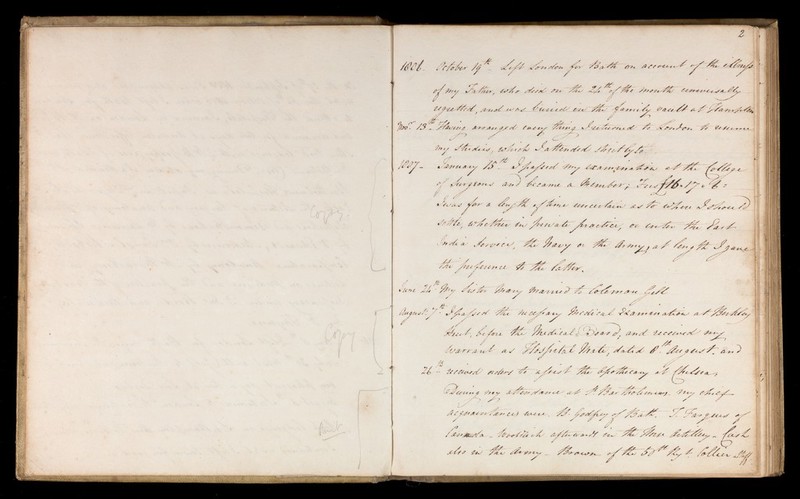 2
1806 October 19th Left London for Bath on account of the illness
of my Father, who died on the 24th of the month universally
regretted, and was buried in the family vault at Hampton
Novr. 13th Having arranged every thing I returned to London to resume
my Studies, which I attended strictly to.
1807 - January 15th I passed my examination at the College
of Surgeons and became a Member; Fees £16.17.
I was for a length of time uncertain as to where I should
settle, whether in private practice, or enter the East
India Service, the Navy or the Army, at length I gave
the preference to the latter.
June 24th My Sister Mary married to Coleman Gill
August 7th I passed the necessary Medical Examination at Berkeley
Street, before the Medical Board, and received my
Warrant as Hospital Mate, dated 8th August, and
26th received orders to assist the Apothecary at Chelsea,
During my attendance at St Bartholomews, my chief
acquaintances were B. Godfrey of Bath. T. Fargues of
Canada. afterwards in the Horse Artillery - Cash
also in the Army - Brown of the Regt. Collier Staff
Copy
Copy